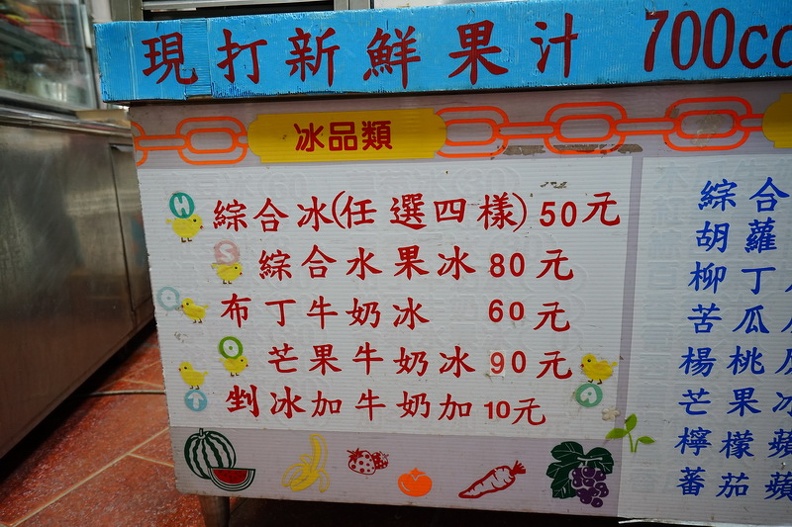 現打新鮮果汁 700cc
冰品類
綜合冰(任選四樣) 50元
綜合水果冰 80元
布丁牛奶冰 60元
芒果牛奶冰 90元
剉冰加牛奶加 10元
綜合
胡蘿
柳丁
苦瓜
楊桃
芒果冰
檸檬蘋
蕃茄蘋